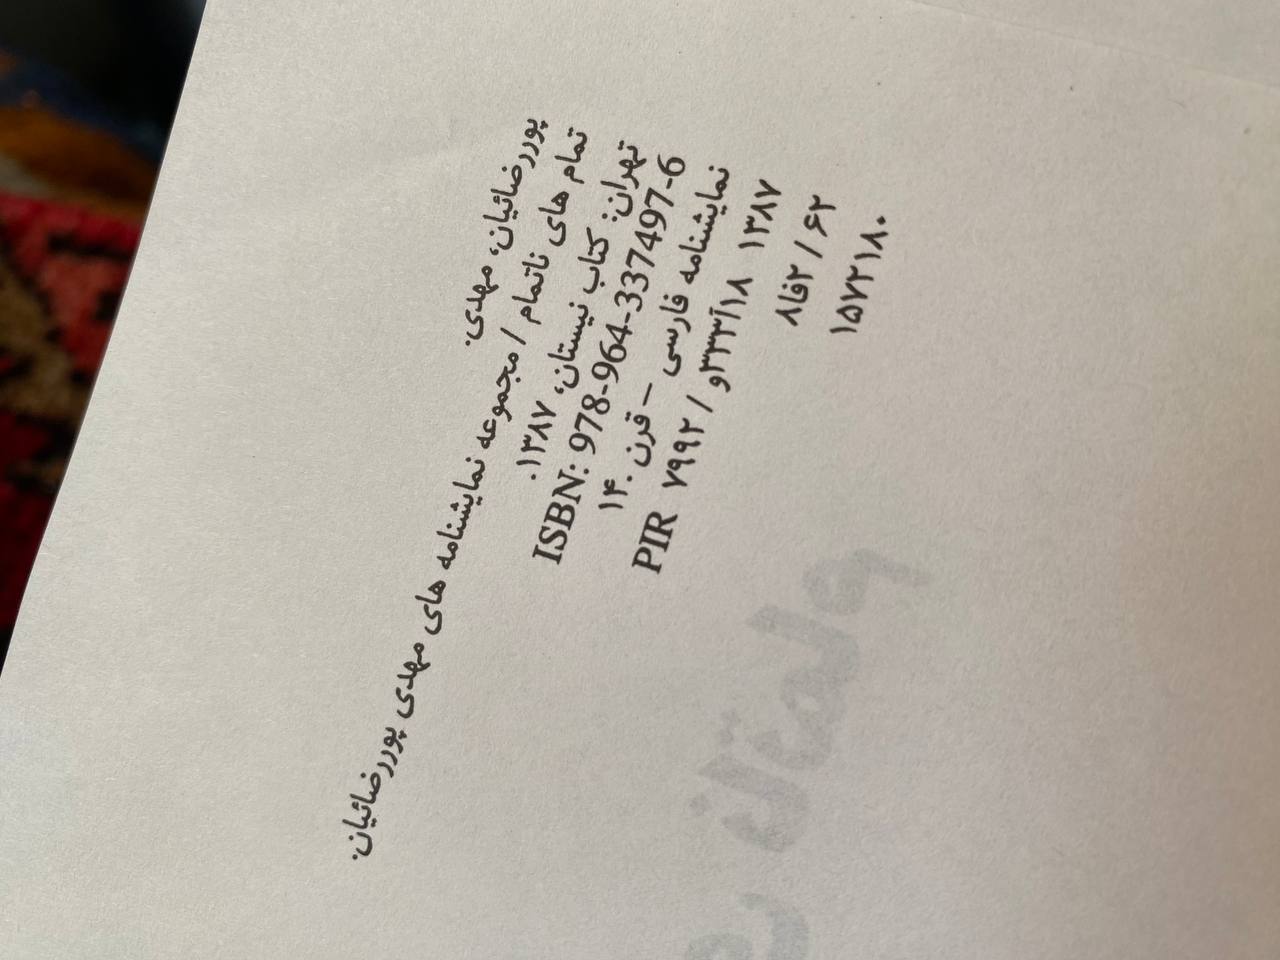 پوررضائیان، مهدی.
تمام های ناتمام / مجموعه نمایشنامه های مهدی پوررضائیان.
تهران: کتاب نیستان، ۱۳۸۷.
ISBN: 978-964-337497-6
نمایشنامه فارسی – قرن ۱۴.
PIR ۷۹۹۲ / و۳۳۳آ۱۸ ۱۳۸۷
۸فا۲ / ۶۲
۱۵۷۲۱۸۰